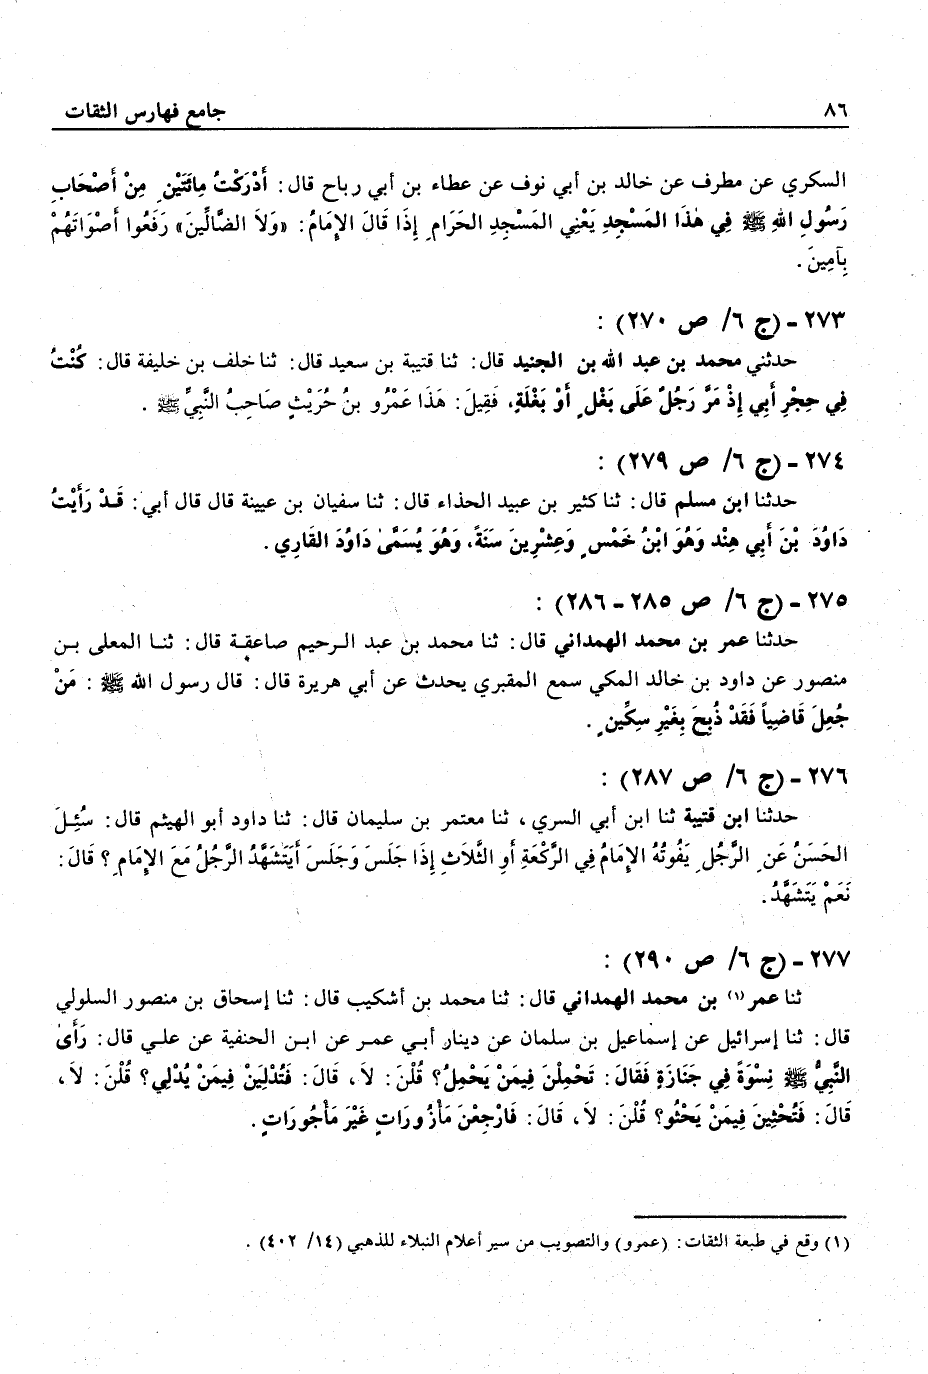 ٨٦ جامع فهارس الثقات
السكري عن مطرف عن خالد بن أبي نوف عن عطاء بن أبي رباح قال: أَدْرَكْتُ مِائَتَيْنِ مِنْ أَصْحَابِ
رَسُولِ اللهِ ﷺ فِي هٰذَا المَسْجِدِ يَعْنِي المَسْجِدِ الحَرَامِ إِذَا قَالَ الإِمَامُ: «وَلاَ الضَّالِّينَ» رَفَعُوا أَصْوَاتَهُمْ
بِآمِينَ.
٢٧٣ - (ج ٦/ ص ٢٧٠) :
حدثني محمد بن عبد الله بن الجنيد قال: ثنا قتيبة بن سعيد قال: ثنا خلف بن خليفة قال: كُنْتُ
فِي حِجْرِ أَبِي إِذْ مَرَّ رَجُلٌ عَلَى بَغْلٍ أَوْ بَغْلَةٍ، فَقِيلَ: هَذَا عَمْرُو بنُ حُرَيْثٍ صَاحِبُ النَّبِيِّ ﷺ .
٢٧٤ - (ج ٦/ ص ٢٧٩) :
حدثنا ابن مسلم قال: ثنا كثير بن عبيد الحذاء قال: ثنا سفيان بن عيينة قال قال أبي: قَدْ رَأَيْتُ
دَاوُدَ بْنَ أَبِي هِنْد وَهُوَ ابْنُ خَمْسٍ وَعِشْرِينَ سَنَةً، وَهُوَ يُسَمَّىٰ دَاوُدَ القَارِي.
٢٧٥ - (ج ٦/ ص ٢٨٥ - ٢٨٦) :
حدثنا عمر بن محمد الهمداني قال: ثنا محمد بن عبد الرحيم صاعقة قال: ثنا المعلى بن
منصور عن داود بن خالد المكي سمع المقبري يحدث عن أبي هريرة قال: قال رسول الله ﷺ : مَنْ
جُعِلَ قَاضِياً فَقَدْ ذُبِحَ بِغَيْرِ سِكِّينٍ .
٢٧٦ - (ج ٦/ ص ٢٨٧) :
حدثنا ابن قتيبة ثنا ابن أبي السري، ثنا معتمر بن سليمان قال: ثنا داود أبو الهيثم قال: سُئِلَ
الحَسَنُ عَنِ الرَّجُلِ يَفُوتُهُ الإِمَامُ فِي الرَّكْعَةِ أَوِ الثَّلَاثِ إِذَا جَلَسَ وَجَلَسَ أَيَتَشَهَّدُ الرَّجُلُ مَعَ الإِمَامِ؟ قَالَ:
نَعَمْ يَتَشَهَّدُ.
٢٧٧ - (ج ٦/ ص ٢٩٠) :
ثنا عمر(١) بن محمد الهمداني قال: ثنا محمد بن أشكيب قال: ثنا إسحاق بن منصور السلولي
قال: ثنا إسرائيل عن إسماعيل بن سلمان عن دينار أبي عمر عن ابن الحنفية عن علي قال: رَأَىٰ
النَّبِيُّ ﷺ نِسْوَةً فِي جَنَازَةٍ فَقَالَ: تَحْمِلْنَ فِيمَنْ يَحْمِلُ؟ قُلْنَ: لاَ، قَالَ: فَتُدْلِينَ فِيمَنْ يُدْلِي؟ قُلْنَ: لاَ،
قَالَ: فَتُحْثِينَ فِيمَنْ يَحْثُو؟ قُلْنَ: لاَ، قَالَ: فَارْجِعْنَ مَأْزُورَاتٍ غَيْرَ مَأْجُورَاتٍ.
(١) وقع في طبعة الثقات: (عمرو) والتصويب من سير أعلام النبلاء للذهبي (١٤/ ٤٠٢) .